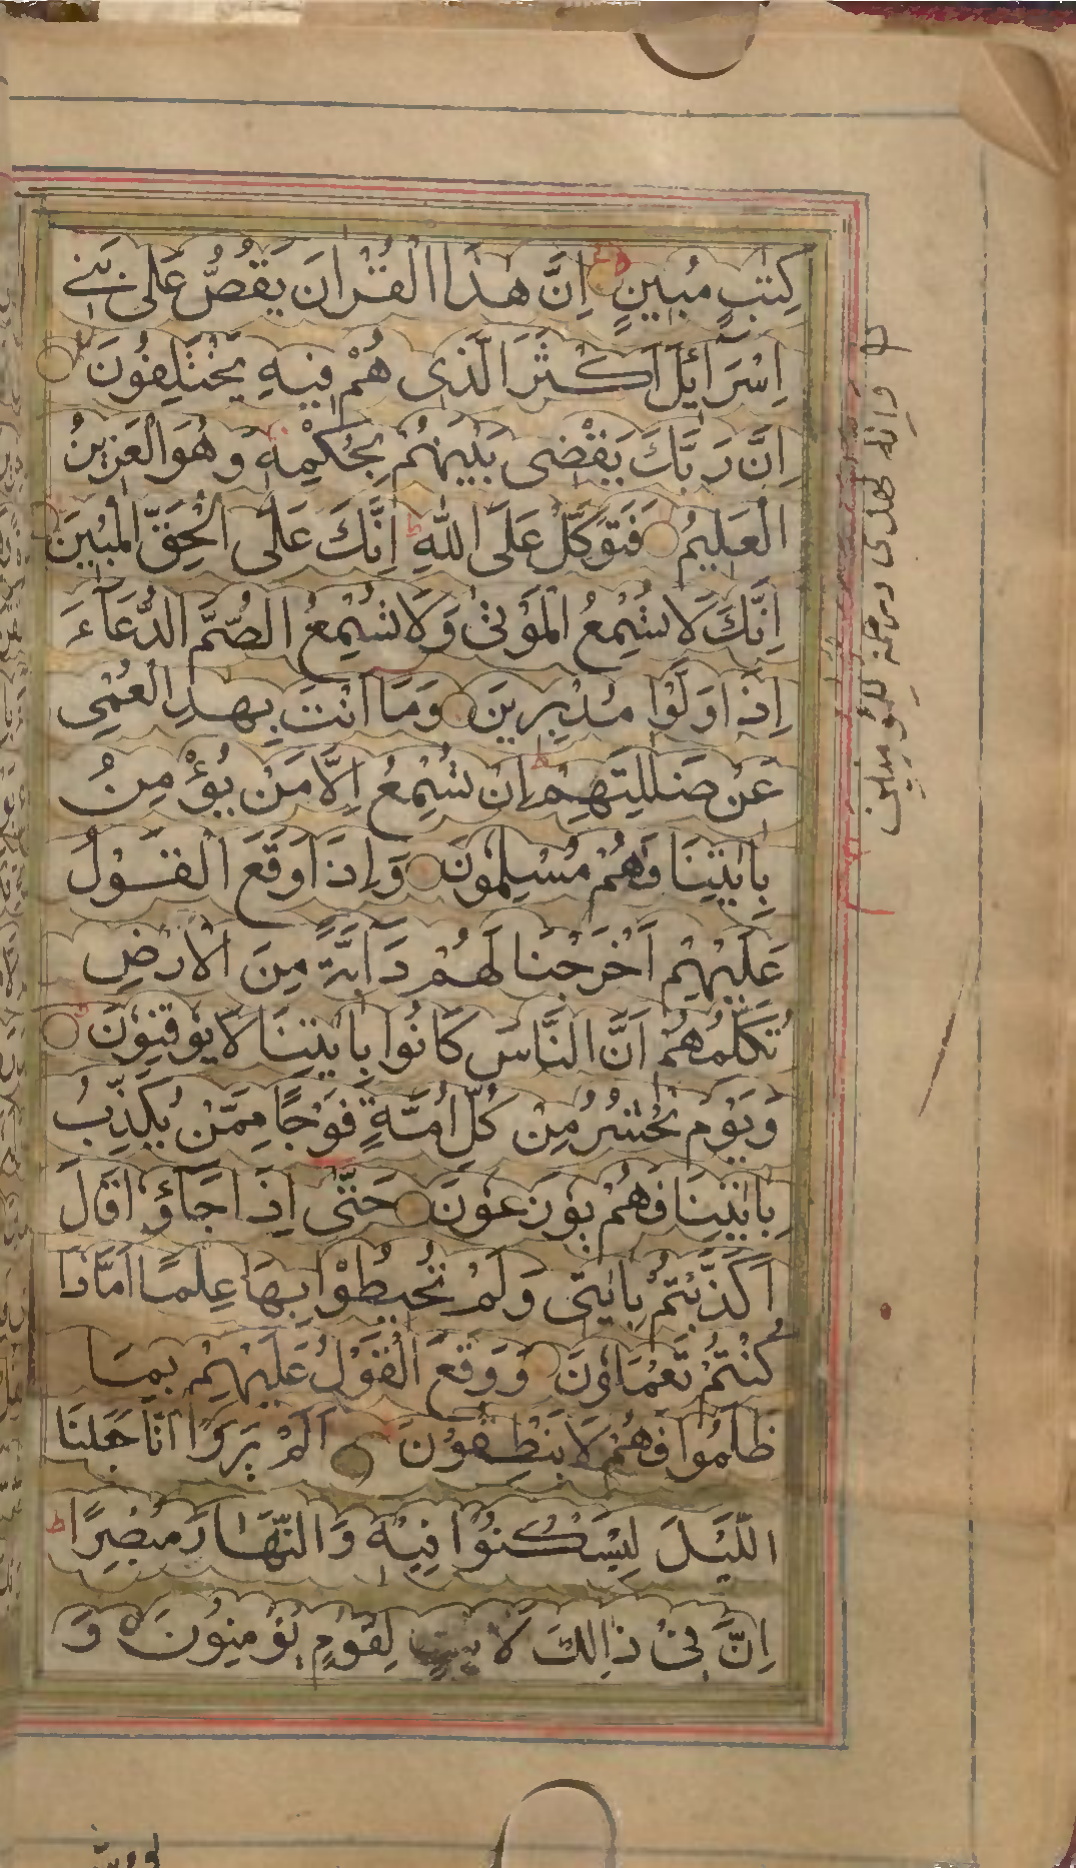 كِتٰبٍ مُبِينٍ ط اِنَّ هٰذَا الْقُرْاٰنَ يَقُصُّ عَلٰى بَنِىْ
اِسْرَآئِلَ اَكْثَرَ الَّذِى هُمْ فِيهِ يَخْتَلِفُونَ
اِنَّ رَبَّكَ يَقْضِى بَيْنَهُمْ بِحُكْمِهٖ وَهُوَ الْعَزِيزُ
الْعَلِيمُ فَتَوَكَّلْ عَلَى اللّٰهِ ط اِنَّكَ عَلَى الْحَقِّ الْمُبِينَ
اِنَّكَ لَا تُسْمِعُ الْمَوْتٰى وَلَا تُسْمِعُ الصُّمَّ الدُّعَآءَ
اِذَا وَلَّوْا مُدْبِرِينَ وَمَا اَنْتَ بِهٰدِ الْعُمْىِ
عَنْ ضَلٰلَتِهِمْ ط اِنْ تُسْمِعُ اِلَّا مَنْ يُؤْمِنُ
بِاٰيٰتِنَا فَهُمْ مُسْلِمُونَ وَاِذَا وَقَعَ الْقَوْلُ
عَلَيْهِمْ اَخْرَجْنَا لَهُمْ دَآبَّةً مِنَ الْاَرْضِ
تُكَلِّمُهُمْ اَنَّ النَّاسَ كَانُوا بِاٰيٰتِنَا لَا يُوقِنُونَ
وَيَوْمَ نَحْشُرُ مِنْ كُلِّ اُمَّةٍ فَوْجًا مِمَّنْ يُكَذِّبُ
بِاٰيٰتِنَا فَهُمْ يُوزَعُونَ حَتّٰى اِذَا جَآؤُا قَالَ
اَكَذَّبْتُمْ بِاٰيٰتِى وَلَمْ تُحِيطُوْا بِهَا عِلْمًا اَمَّاذَا
كُنْتُمْ تَعْمَلُونَ وَوَقَعَ الْقَوْلُ عَلَيْهِمْ بِمَا
ظَلَمُوا فَهُمْ لَا يَنْطِقُوْنَ اَلَمْ يَرَوْا اَنَّا جَعَلْنَا
اللَّيْلَ لِيَسْكُنُوْا فِيْهِ وَالنَّهَارَ مُبْصِرًا ط
اِنَّ فِىْ ذٰالِكَ لَاٰيٰتٍ لِقَوْمٍ يُؤْمِنُوْنَ وَ
وانه لهدى ورحمة للمؤمنين